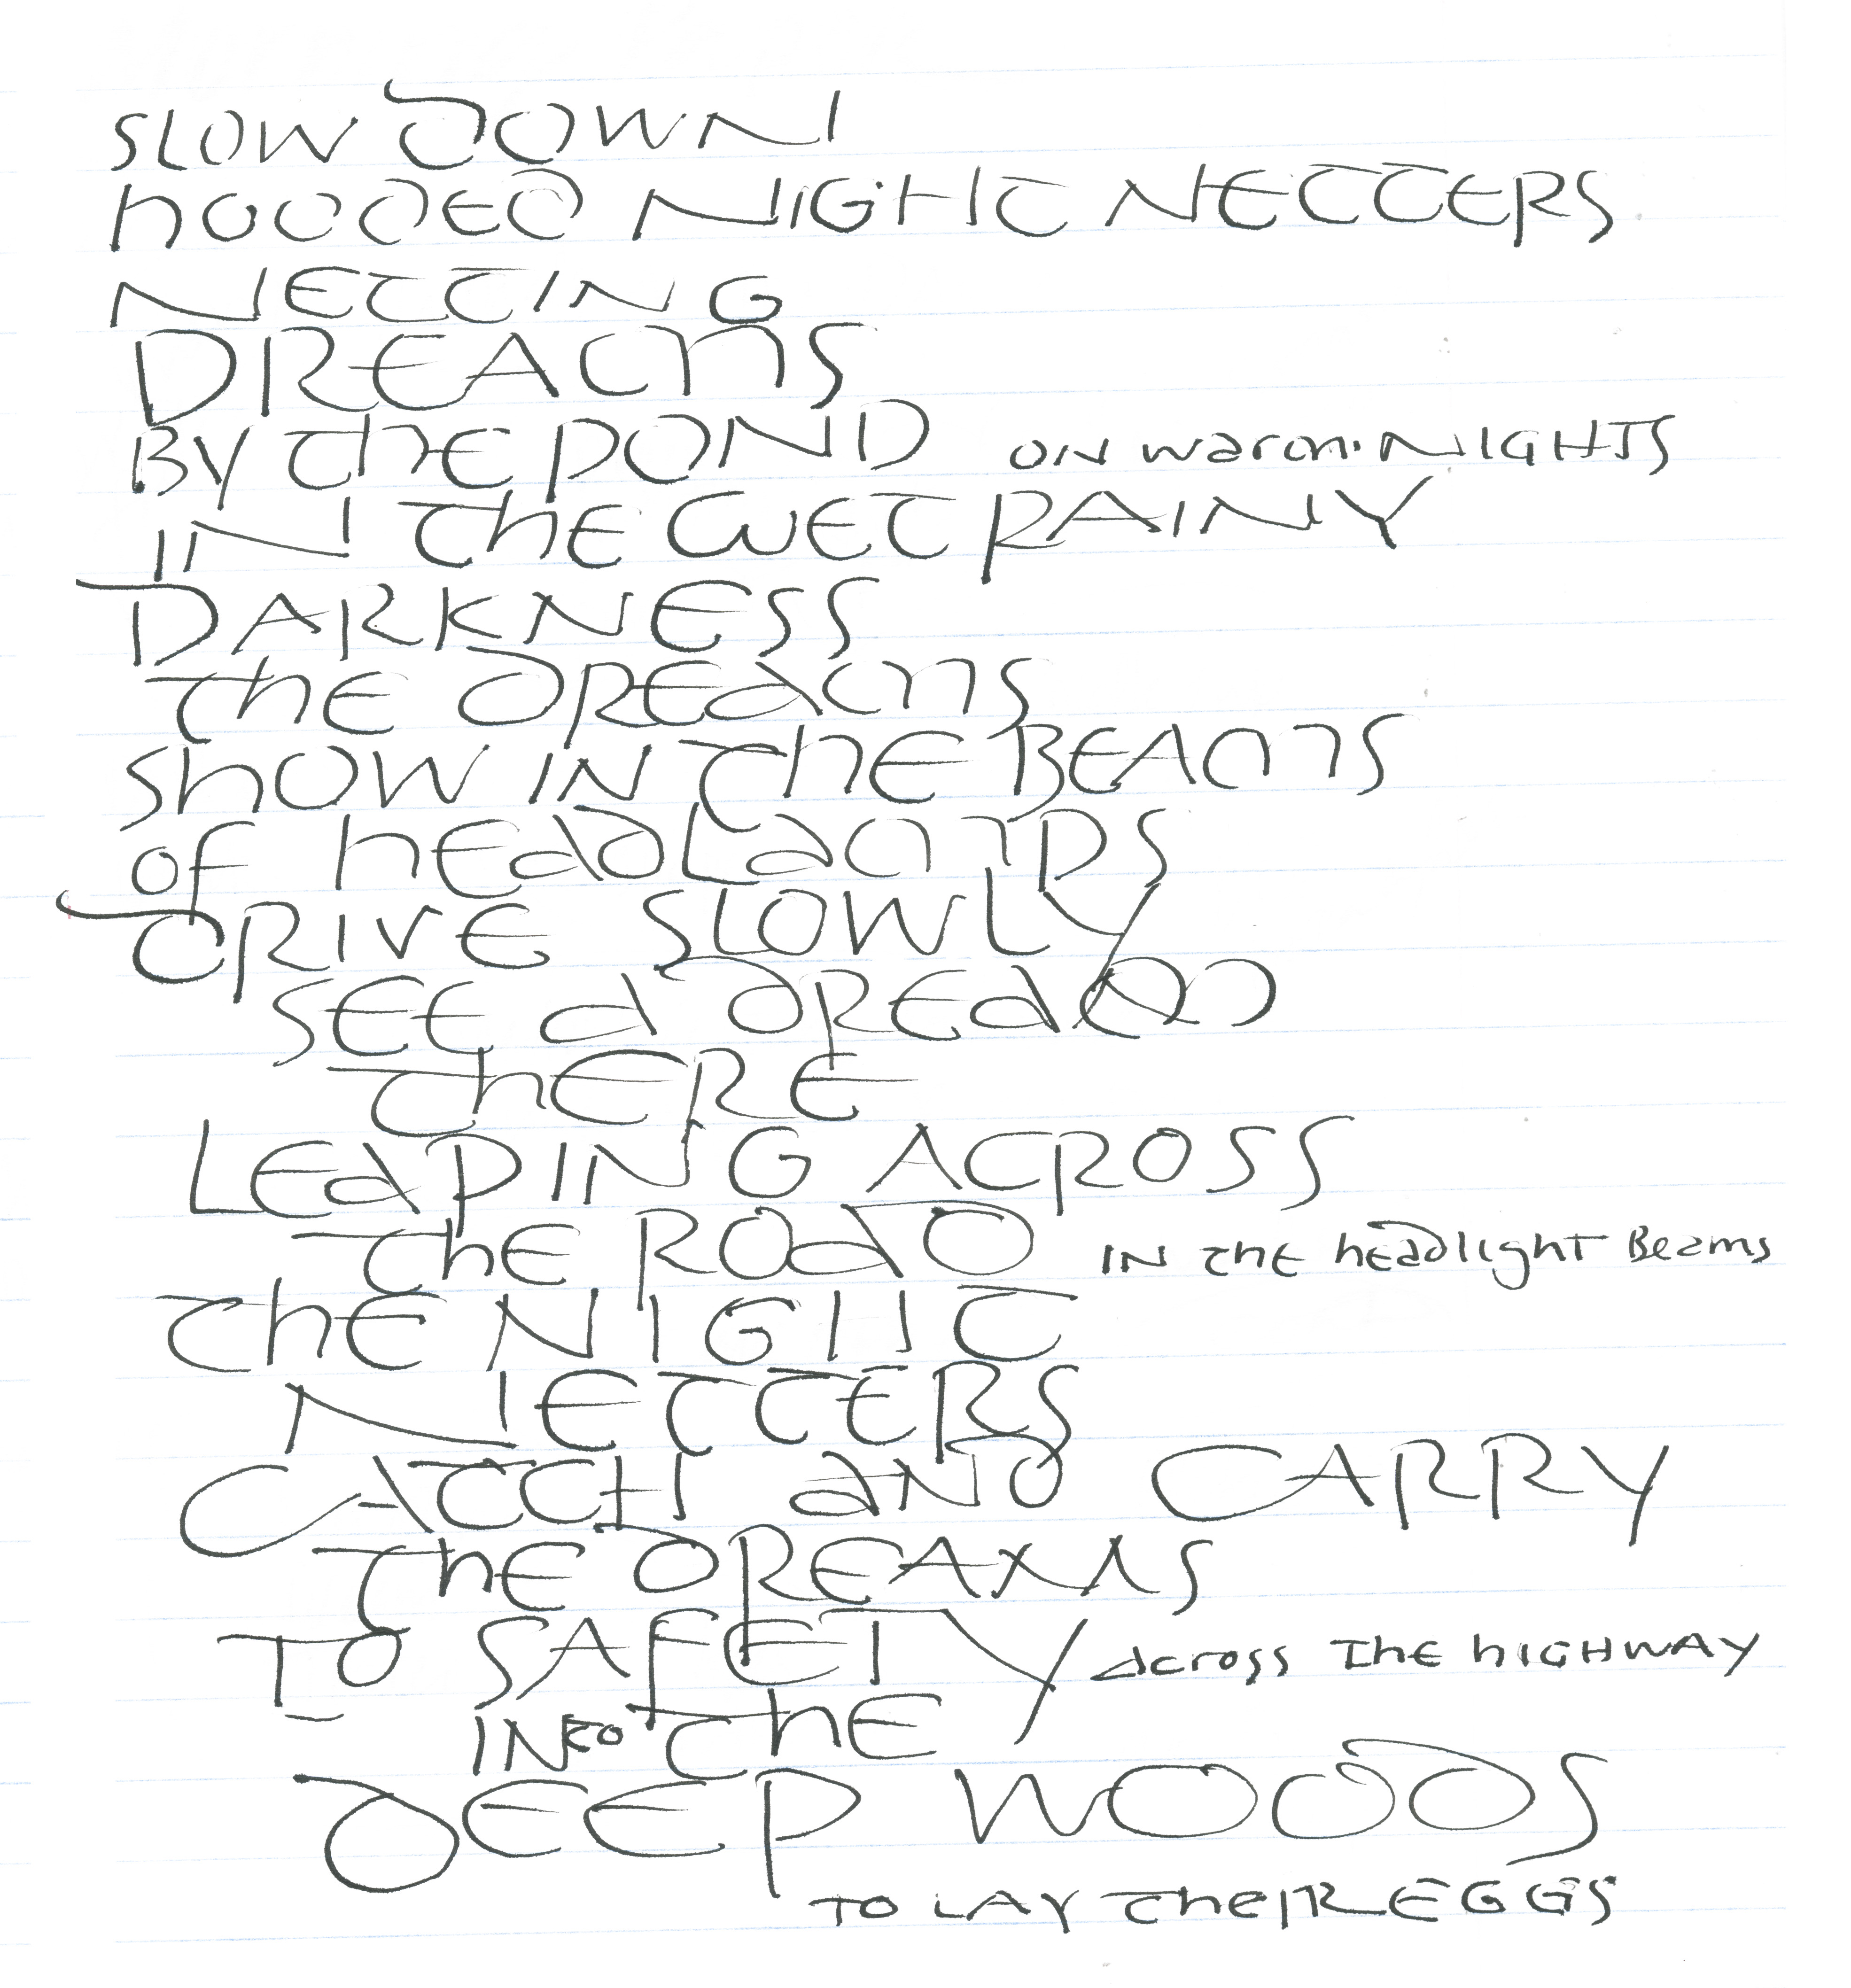 SLOW DOWN
hOODED NIGHT NETTERS
NETTING
DREAMS
BY thE POND ON warm NIGHTS
IN thE WET RAINY
DARKNESS
thE DREAMS
ShOW IN thE BEAMS
of hEADLAMPS
DRIVE SLOWLY
SEE a DREAM
thERE
LEAPING ACROSS
thE ROAD IN thE headlight Beams
thE NIGHT
NETTERS
CATCH AND CARRY
thE DREAMS
TO SAFETY across ThE hIGHWAY
INto thE
DEEP WOODS
TO LAY theIR EGGS